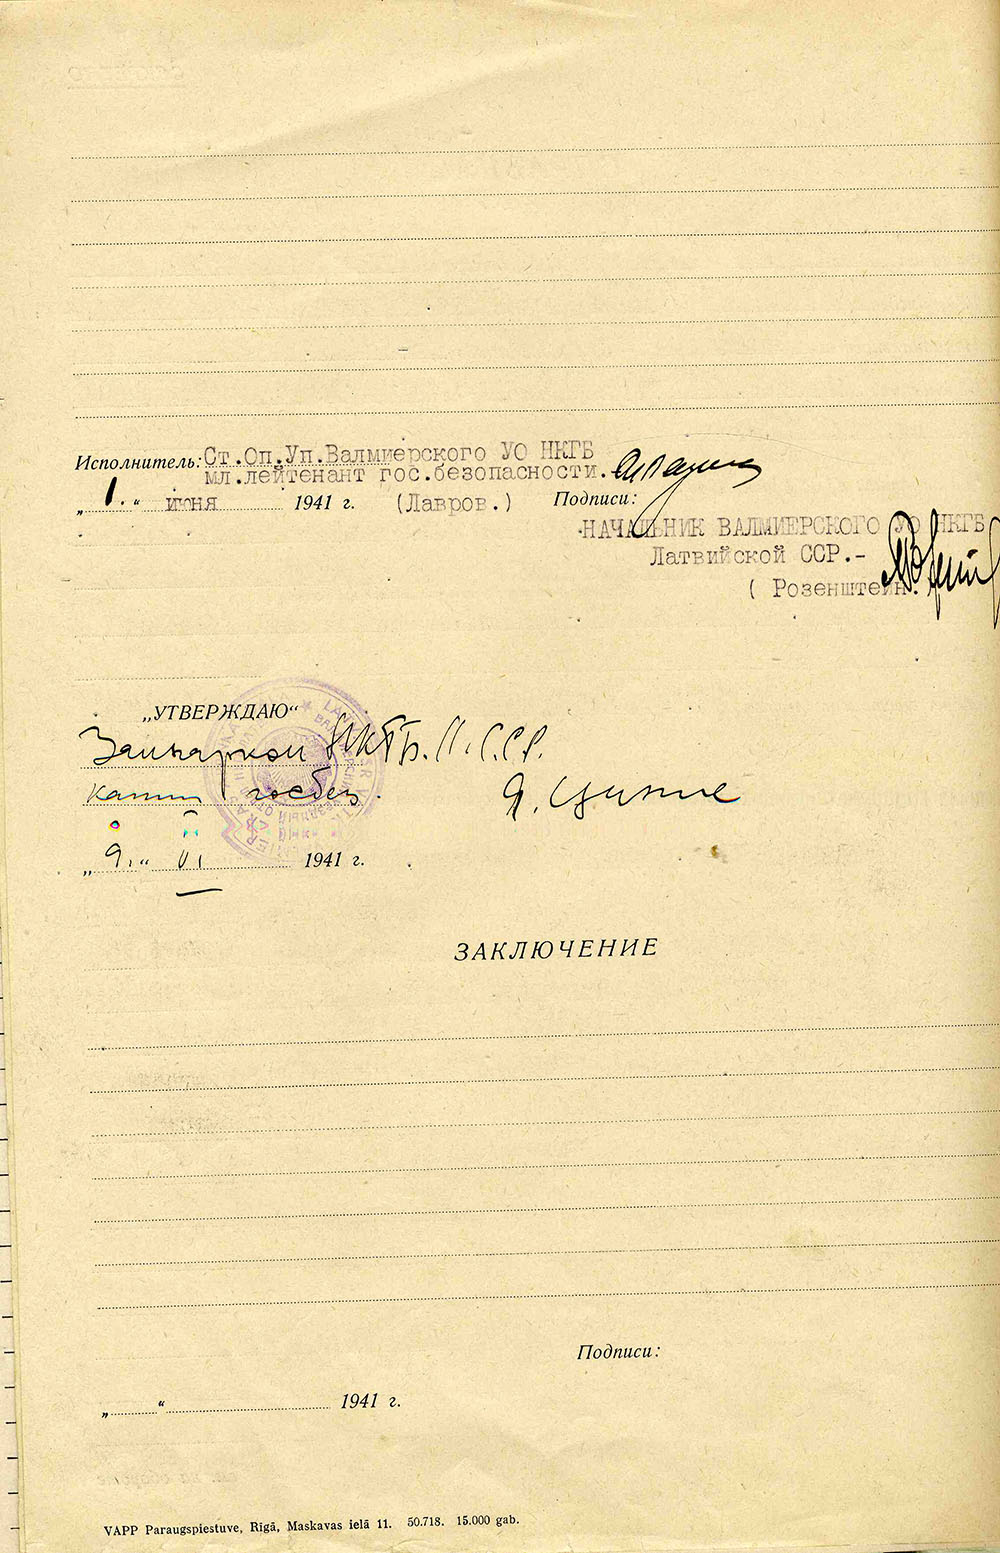 Исполнитель: Ст.Оп.Уп.Валмиерского УО НКГБ
мл.лейтенант гос.безопасности.
„1.“ июня 1941 г. (Лавров.) Подписи:
НАЧАЛЬНИК ВАЛМИЕРСКОГО УО НКГБ
Латвийской ССР.-
( Розенштейн.
„УТВЕРЖДАЮ“
Замнарком НКГБ. Л.С.С.Р.
капит госбез. Я. Цинис
„9.“ VI 1941 г.
ЗАКЛЮЧЕНИЕ
Подписи:
„ “ 1941 г.
VAPP Paraugspiestuve, Rīgā, Maskavas ielā 11. 50.718. 15.000 gab.